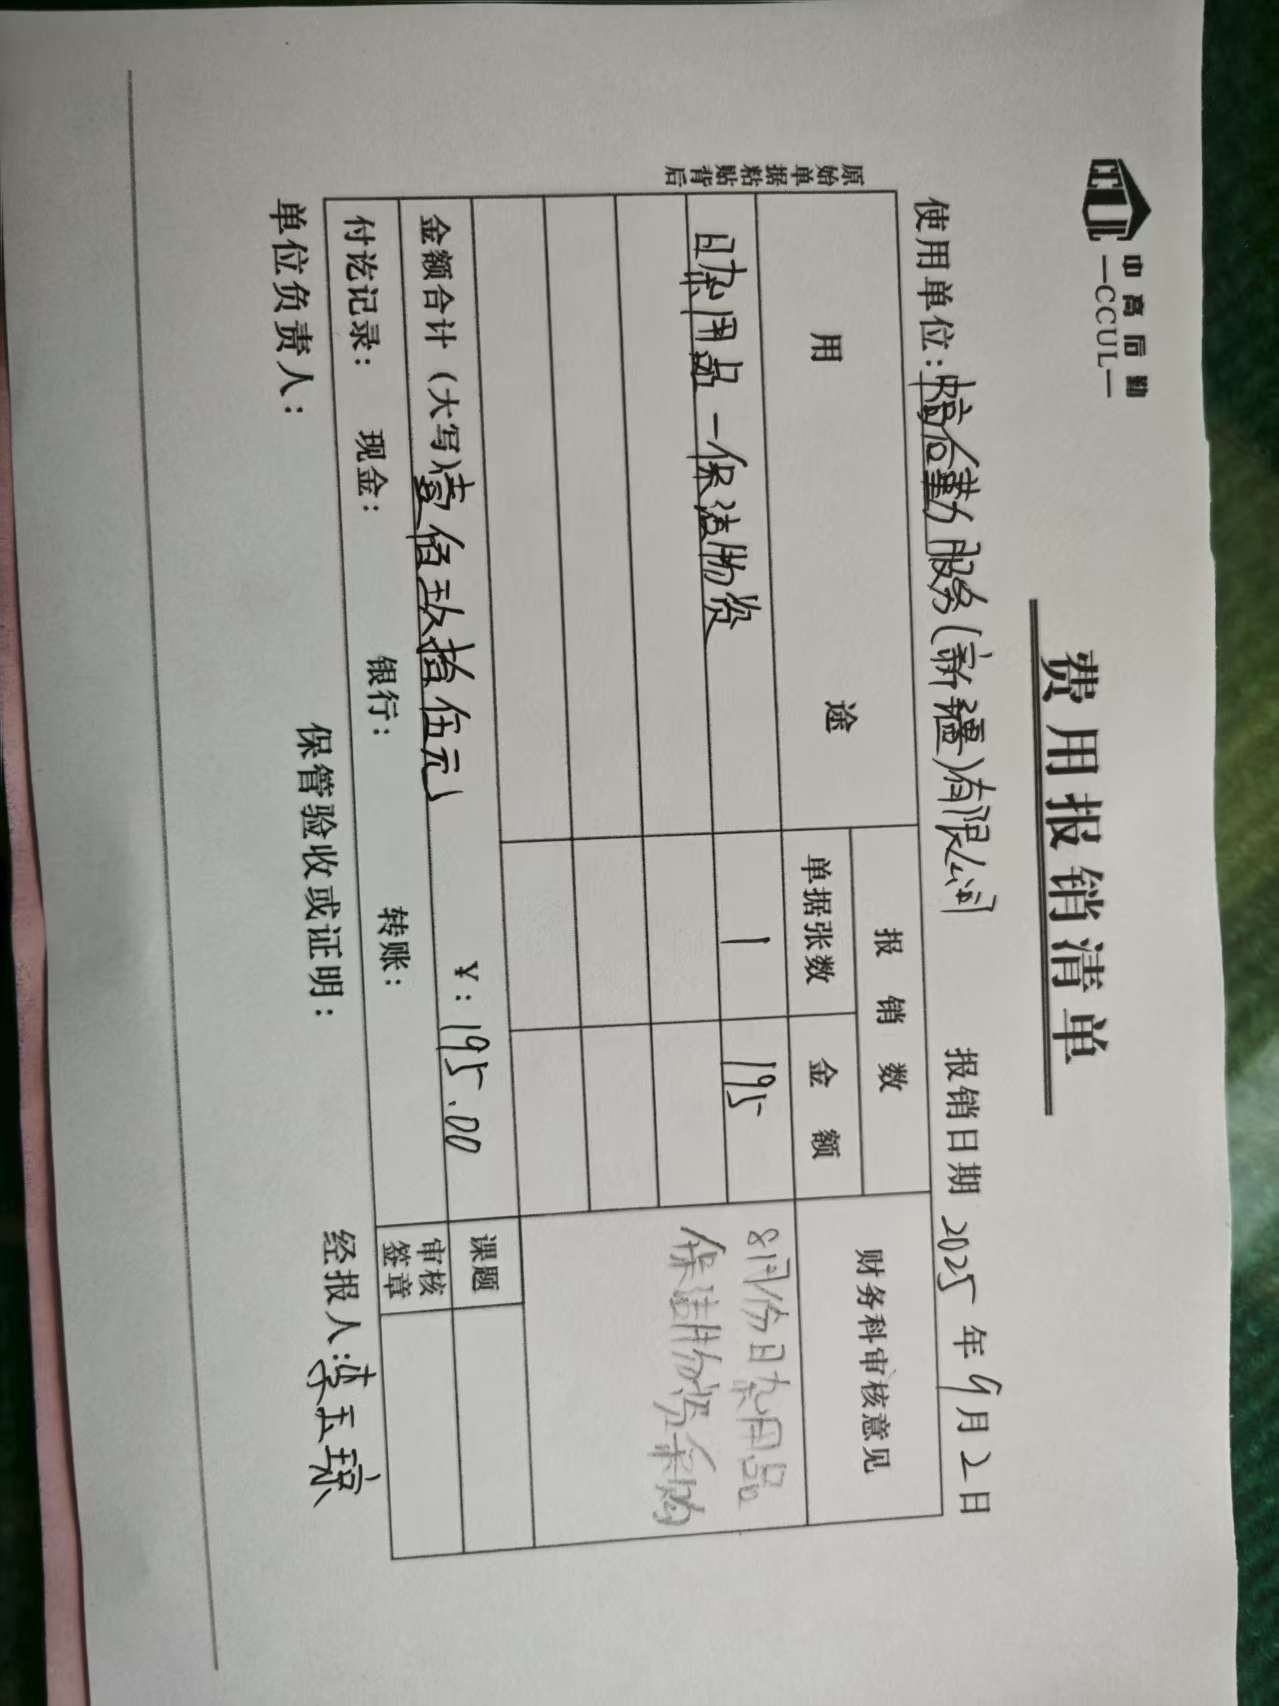 中高后勤
—CCUL—
费用报销清单
使用单位：中高后勤服务（新疆）有限公司 报销日期 2025年9月2日
原始单据粘贴背后
用 途 报销数 财务科审核意见
单据张数 金额
日杂用品—保洁物资 1 195
8月份日杂用品
保洁物资采购
金额合计（大写）壹佰玖拾伍元 ¥：195.00 课题
付讫记录： 现金： 银行： 转账： 审核签章
单位负责人： 保管验收或证明： 经报人：李玉琼